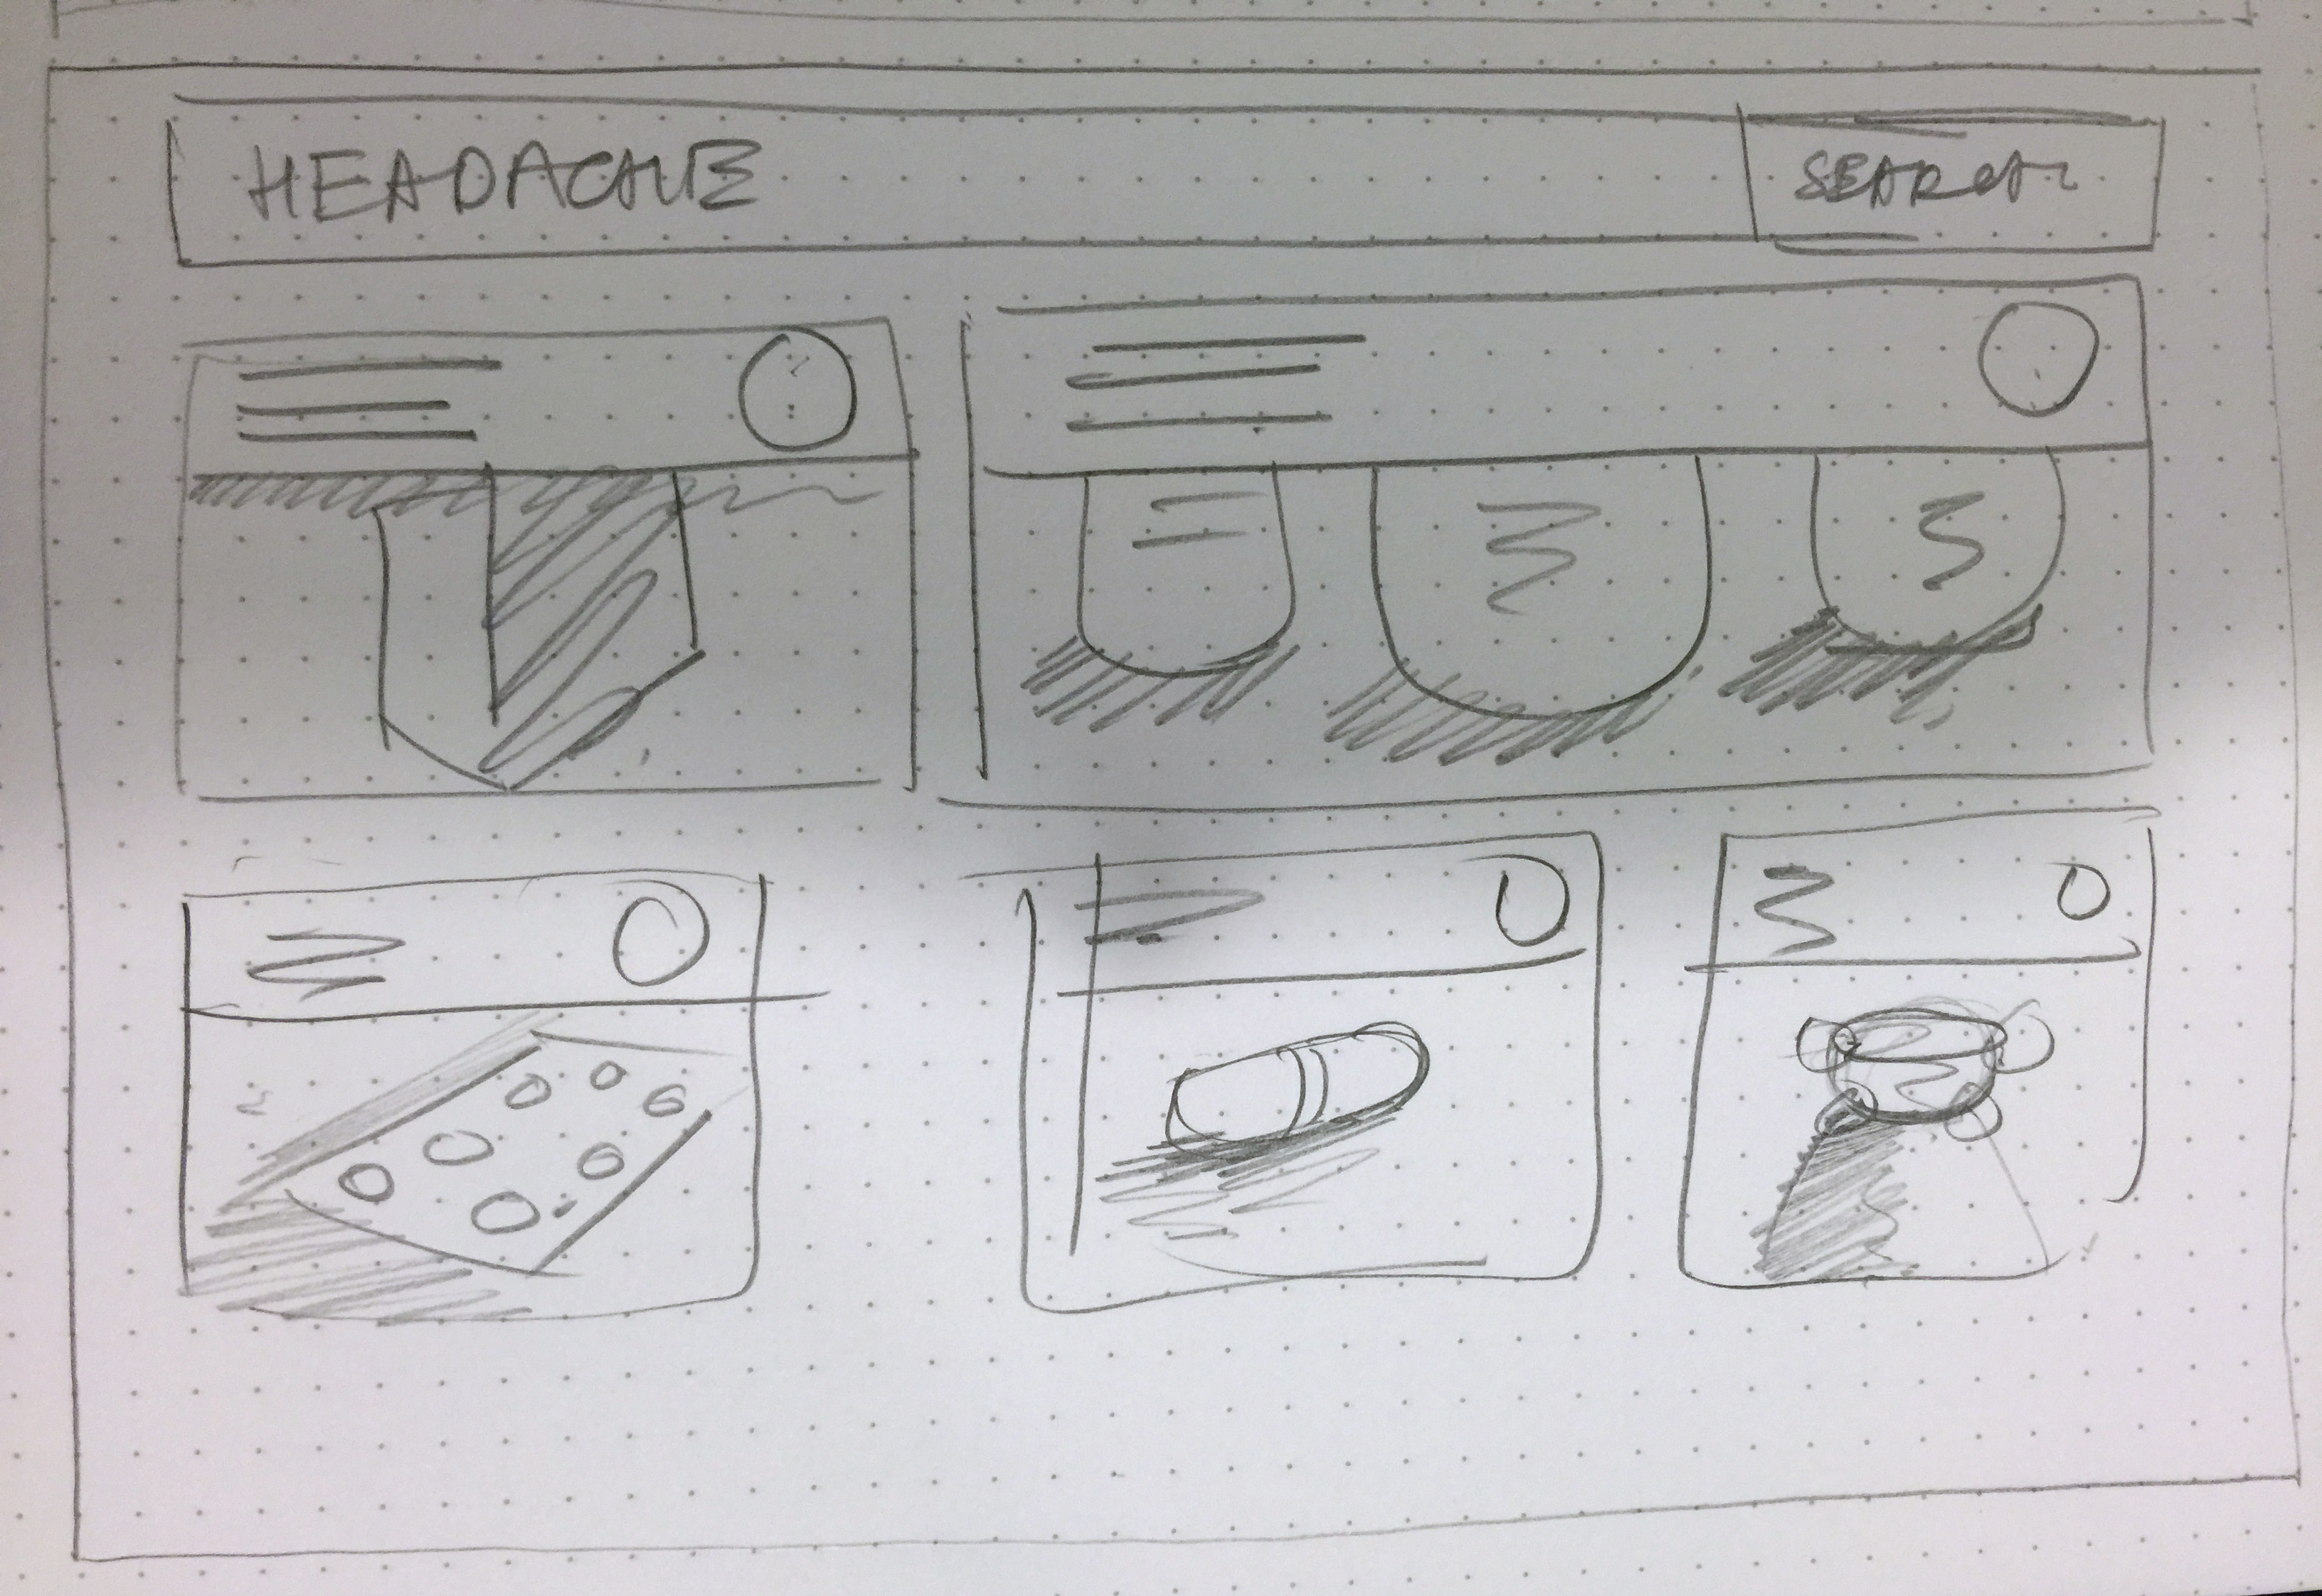 HEADACHE
SEARCH